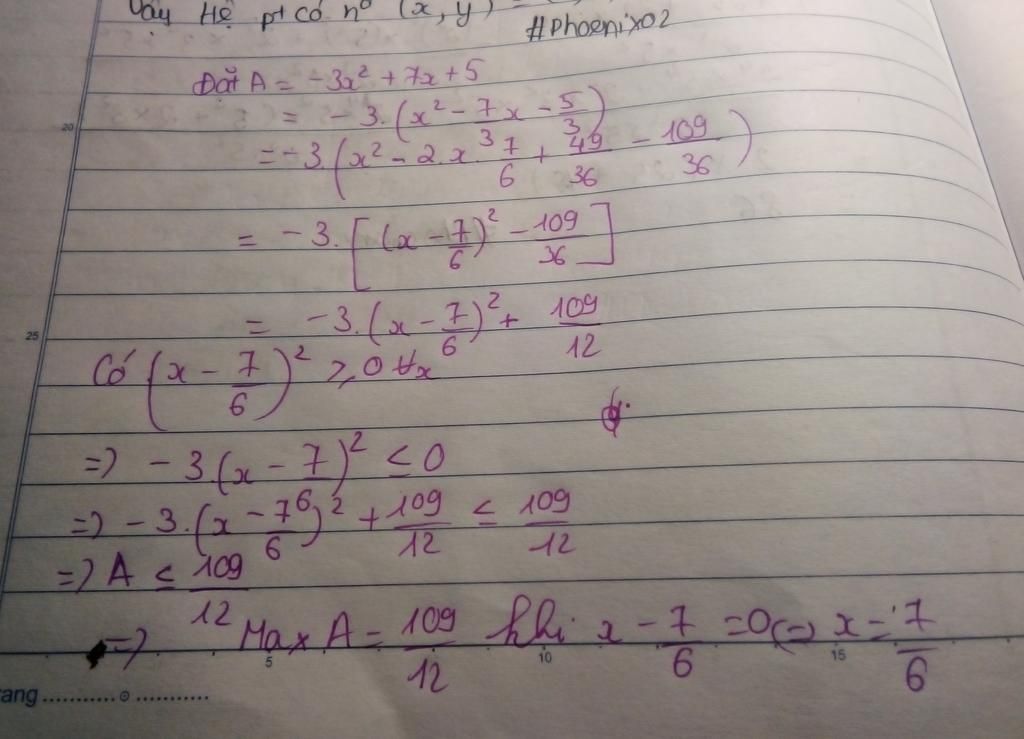 Vậy Hệ pt có nº (x, y) =
#Phoenix02
Đặt A = -3x² + 7x + 5
= -3.(x² - 7/3 x - 5/3)
= -3.(x² - 2.x.7/6 + 49/36 - 109/36)
20
= -3.[(x - 7/6)² - 109/36]
= -3.(x - 7/6)² + 109/12
25
Có (x - 7/6)² ≥ 0 ∀x
=> -3.(x - 7/6)² ≤ 0
=> -3.(x - 7/6)² + 109/12 ≤ 109/12
=> A ≤ 109/12
=> Max A = 109/12 khi x - 7/6 = 0 (=) x = 7/6
5 10 15
ang